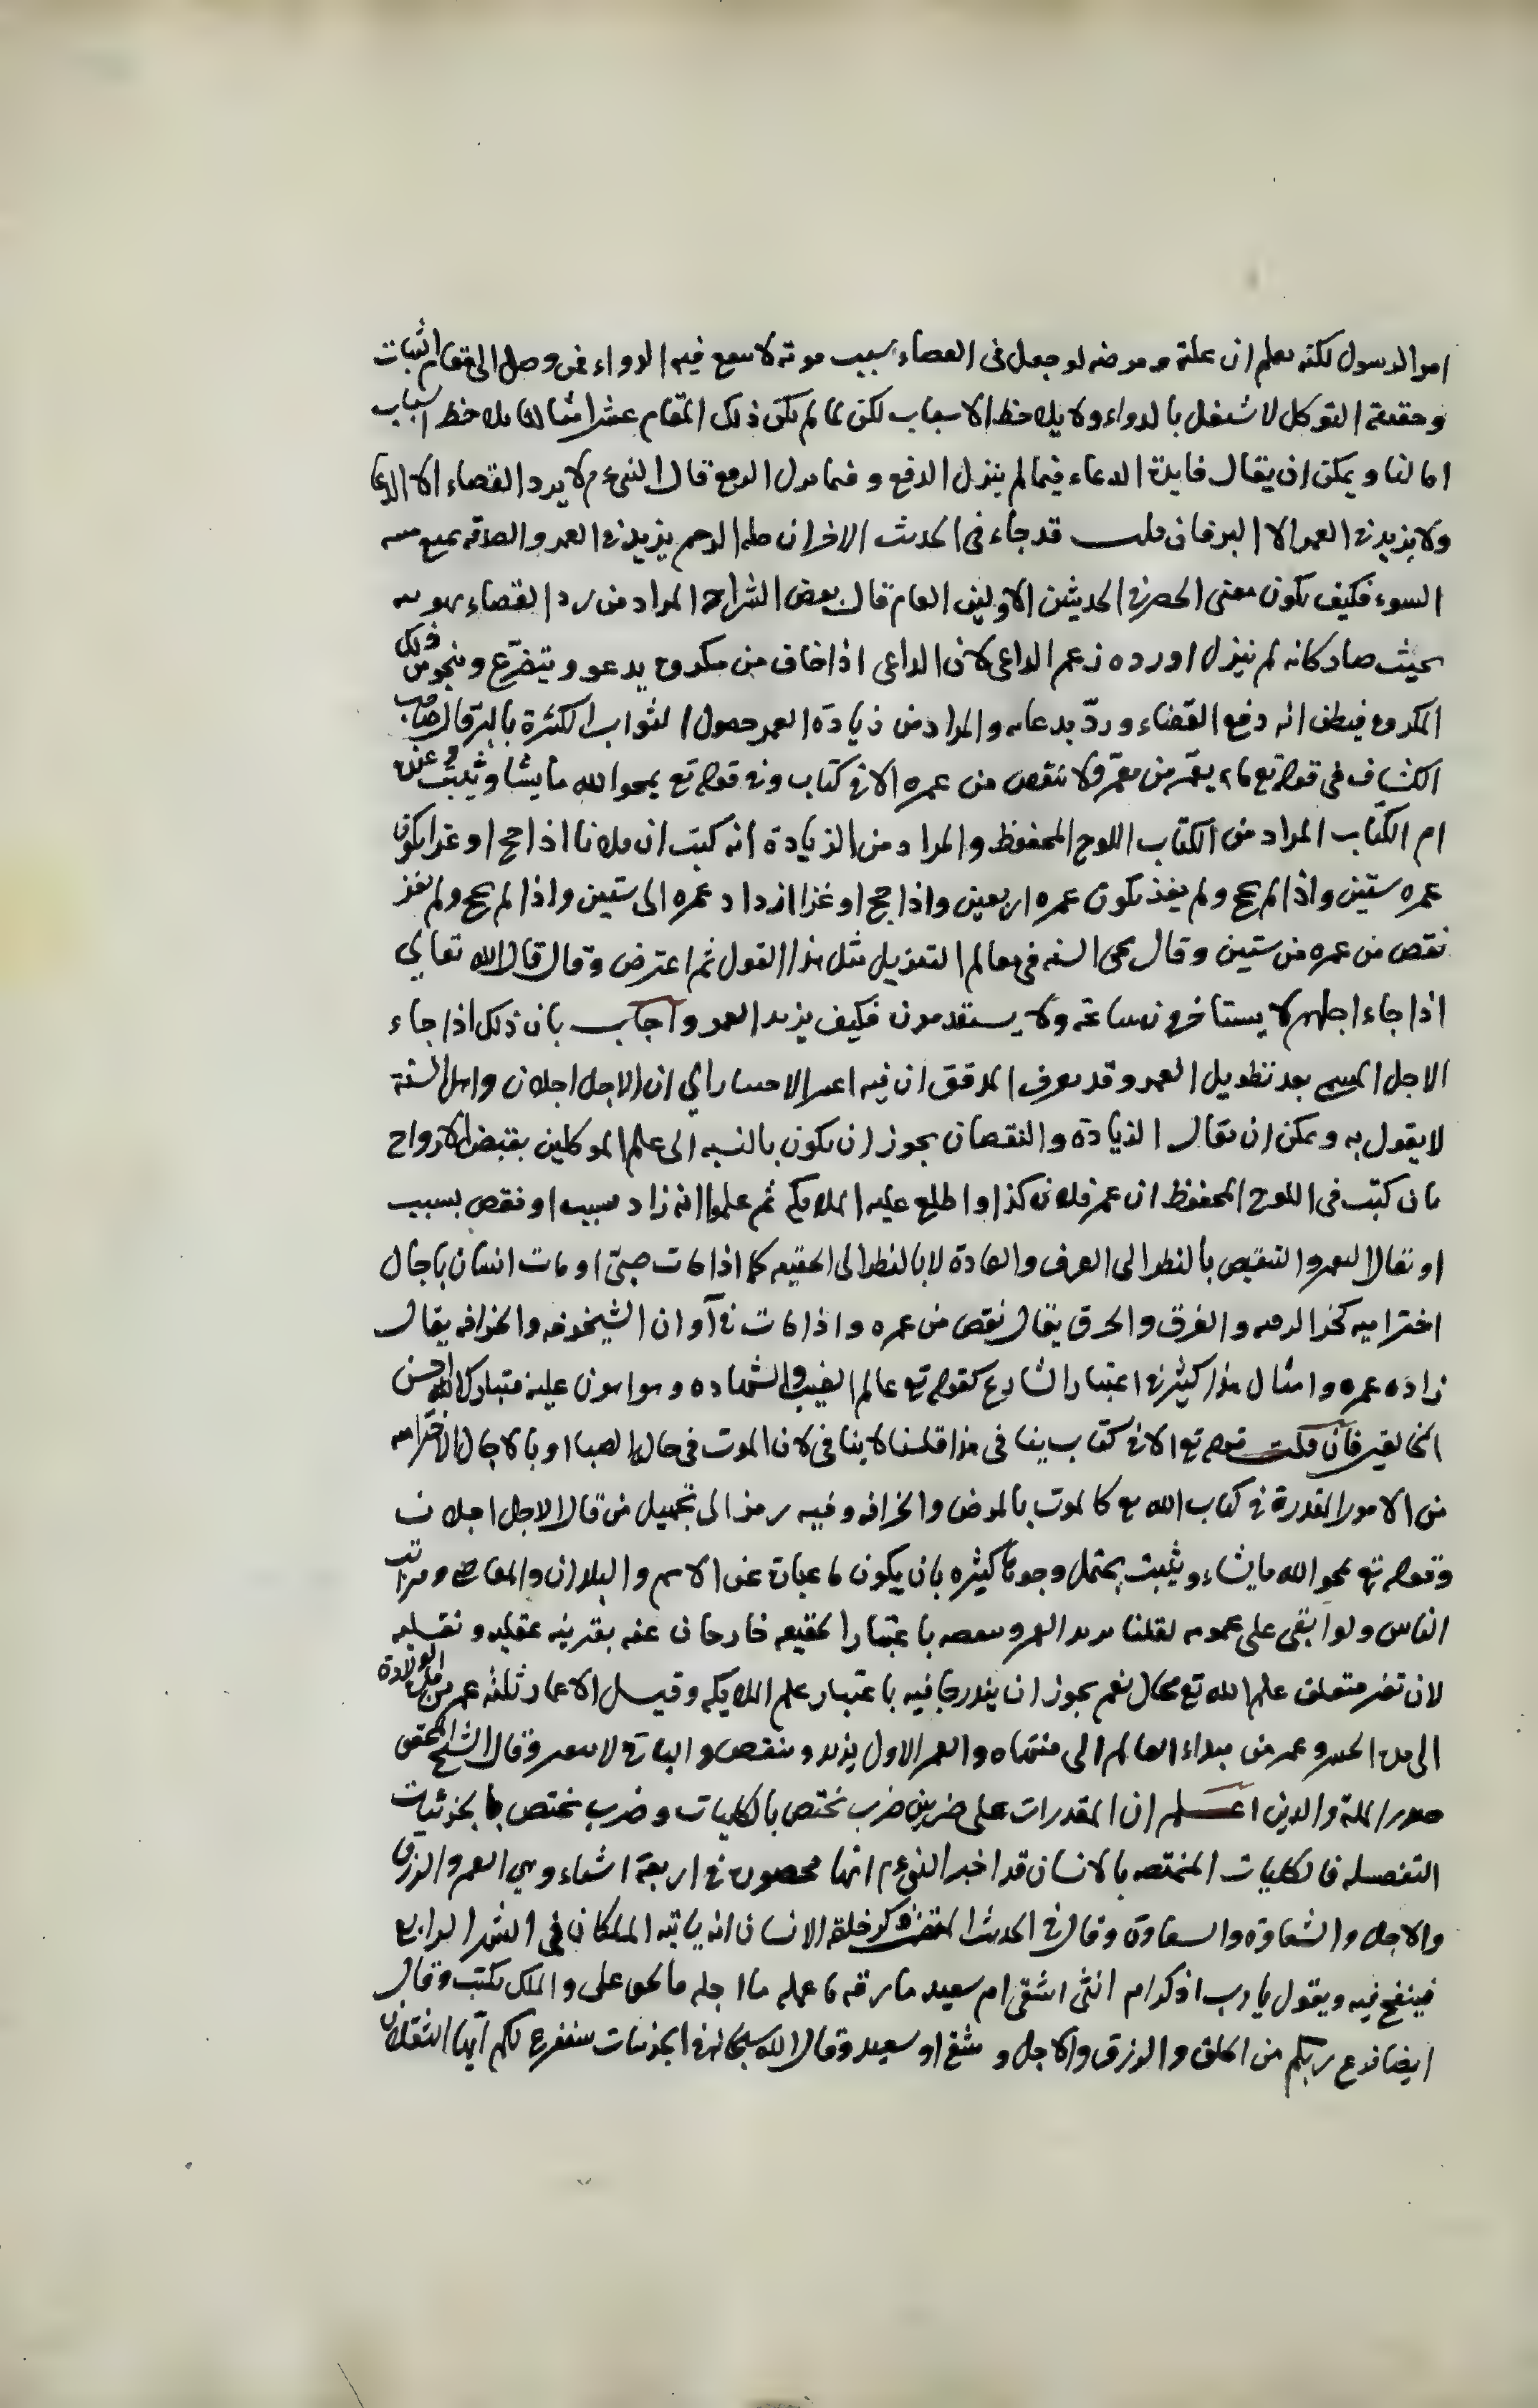 امر الرسول لكنه يعلم ان علته ومرضه لو جعل فى القضاء سبب موته لا ينفع فيه الدواء فمن وصل الى مقام اثبات
وحقيقة التوكل لا شتغل بالدواء ولا يلاحظ الاسباب لكن لما لم يكن ذلك المقام عشر امثالنا يلاحظ اسباب
امالنا ويمكن ان يقال فايدة الدعاء فيما لم ينزل الدفع وفيما نزل الرفع قال النبى ءم لا يرد القضاء الا الدعا
ولا يزيد فى العمر الا البر فان قلت قد جاء فى الحديث الاخر ان صلة الرحم يزيد فى العمر والصدقه يمنع ميته
السوء فكيف يكون معنى الحصر فى الحديثين الاولين العام قال بعض الشراح المراد من رد القضاء تهوينه
بحيث صار كانه لم ينزل او رده زعم الداعى لان الداعى اذا خاف من مكروه يدعو ويتضرع وينجو من ذلك
المكروه فيظن انه دفع القضاء وردّ بدعائه والمراد من زيادة العمر حصول الثواب الكثرة بالبرّ قال صاحب
الكشاف فى قوله تع وما يعمّر من معمّر ولا ينقص من عمره الا فى كتاب وفى قوله تع يمحوا الله ما يشا ويثبت وعنده
ام الكتاب المراد من الكتاب اللوح المحفوظ والمراد من الزيادة انه كتب ان فلانا اذا حج او غزا يكون
عمره ستين واذا لم يحج ولم يغز يكون عمره اربعين واذا حج او غزا ازداد عمره الى ستين واذا لم يحج ولم يغز
نقص من عمره من ستين وقال محى السنه فى معالم التنزيل مثل هذا القول ثم اعترض وقال قال الله تعالى
اذا جاء اجلهم لا يستاخرون ساعة ولا يستقدمون فكيف يزيد العمر واجاب بان ذلك اذا جاء
الاجل المسمى بعد تطويل العمر وقد يعرف المدقق ان فيه اى ان الاجل اجلان واهل السنة
لا يقول به ويمكن ان يقال الزيادة والنقصان يجوز ان يكون بالنسبه الى علم الموكلين بقبض الارواح
بان كتب فى اللوح المحفوظ ان عمر فلان كذا واطلع عليه الملايكه ثم علموا انه زاد بسبب او نقص بسبب
او يقال التعمر والتنقيص بالنظر الى العرف والعادة لا بالنظر الى الحقيقه كما اذا مات صبىّ او مات انسان باجال
اختراميه كخر الدمه والغرق والحرق يقال نقص من عمره واذا مات فى آوان الشيخوخه والخرافه يقال
زاده عمره وامثال هذا كثير فى اعتبار الشارع كقوله تع عالم الغيب والشهاده وهو اهون عليه فتبارك الله احسن
الخالقين فان قلت قوله تع الا فى كتاب ينا فى هذا قلنا لا ينافى لان الموت فى حال الصبا او بالاجال الاختراميه
من الامور المقدرة فى كتاب الله مع كالموت بالمرض والخرافه وفيه رمز الى تجهيل من قال الاجل اجلان
وقوله تع يمحو الله ما يشاء ويثبت يحتمل وجوها كثيره بان يكون ما عبارة عن الاسم والبلدان والمعاصى ومراتب
الناس ولو ابقى على عمومه لقلنا مزيد العمر ونقصه باعتبار الحقيقه خارجان عنه بقرينه عقليه ونقليه
لان تغير متعلق علم الله تع محال نعم يجوز ان يندرجا فيه باعتبار علم الملايكه وقيل الاعمار ثلثه عمر من الولادة
الى الحشر وعمر من مبداء العالم الى منتهاه والعمر الاول يزيد وينقص والباقى لا يتغير وقال الشيخ المحقق
صدر الملة والدين اعلم ان المقدرات على ضربين ضرب يختص بالكليات وضرب يختص بالجزئيات
التفصيليه فالكليات المختصه بالانسان قد اخبر النبى ءم انها محصورة فى اربعة اشياء وهى العمر والرزق
والاجل والشقاوه والسعاوة وقال فى الحديث خلقه الانسان انه ياتيه الملكان فى الشهر الرابع
فينفخ فيه ويقول يا رب اذكر ام انثى اشقى ام سعيد ما رزقه ما عمله ما اجله فالحق يملى والملك يكتب وقال
ايضا فرغ ربكم من الخلق والرزق والاجل وشقى او سعيد وقال الله سبحانه فى الجزئيات سنفرغ لكم ايها الثقلان